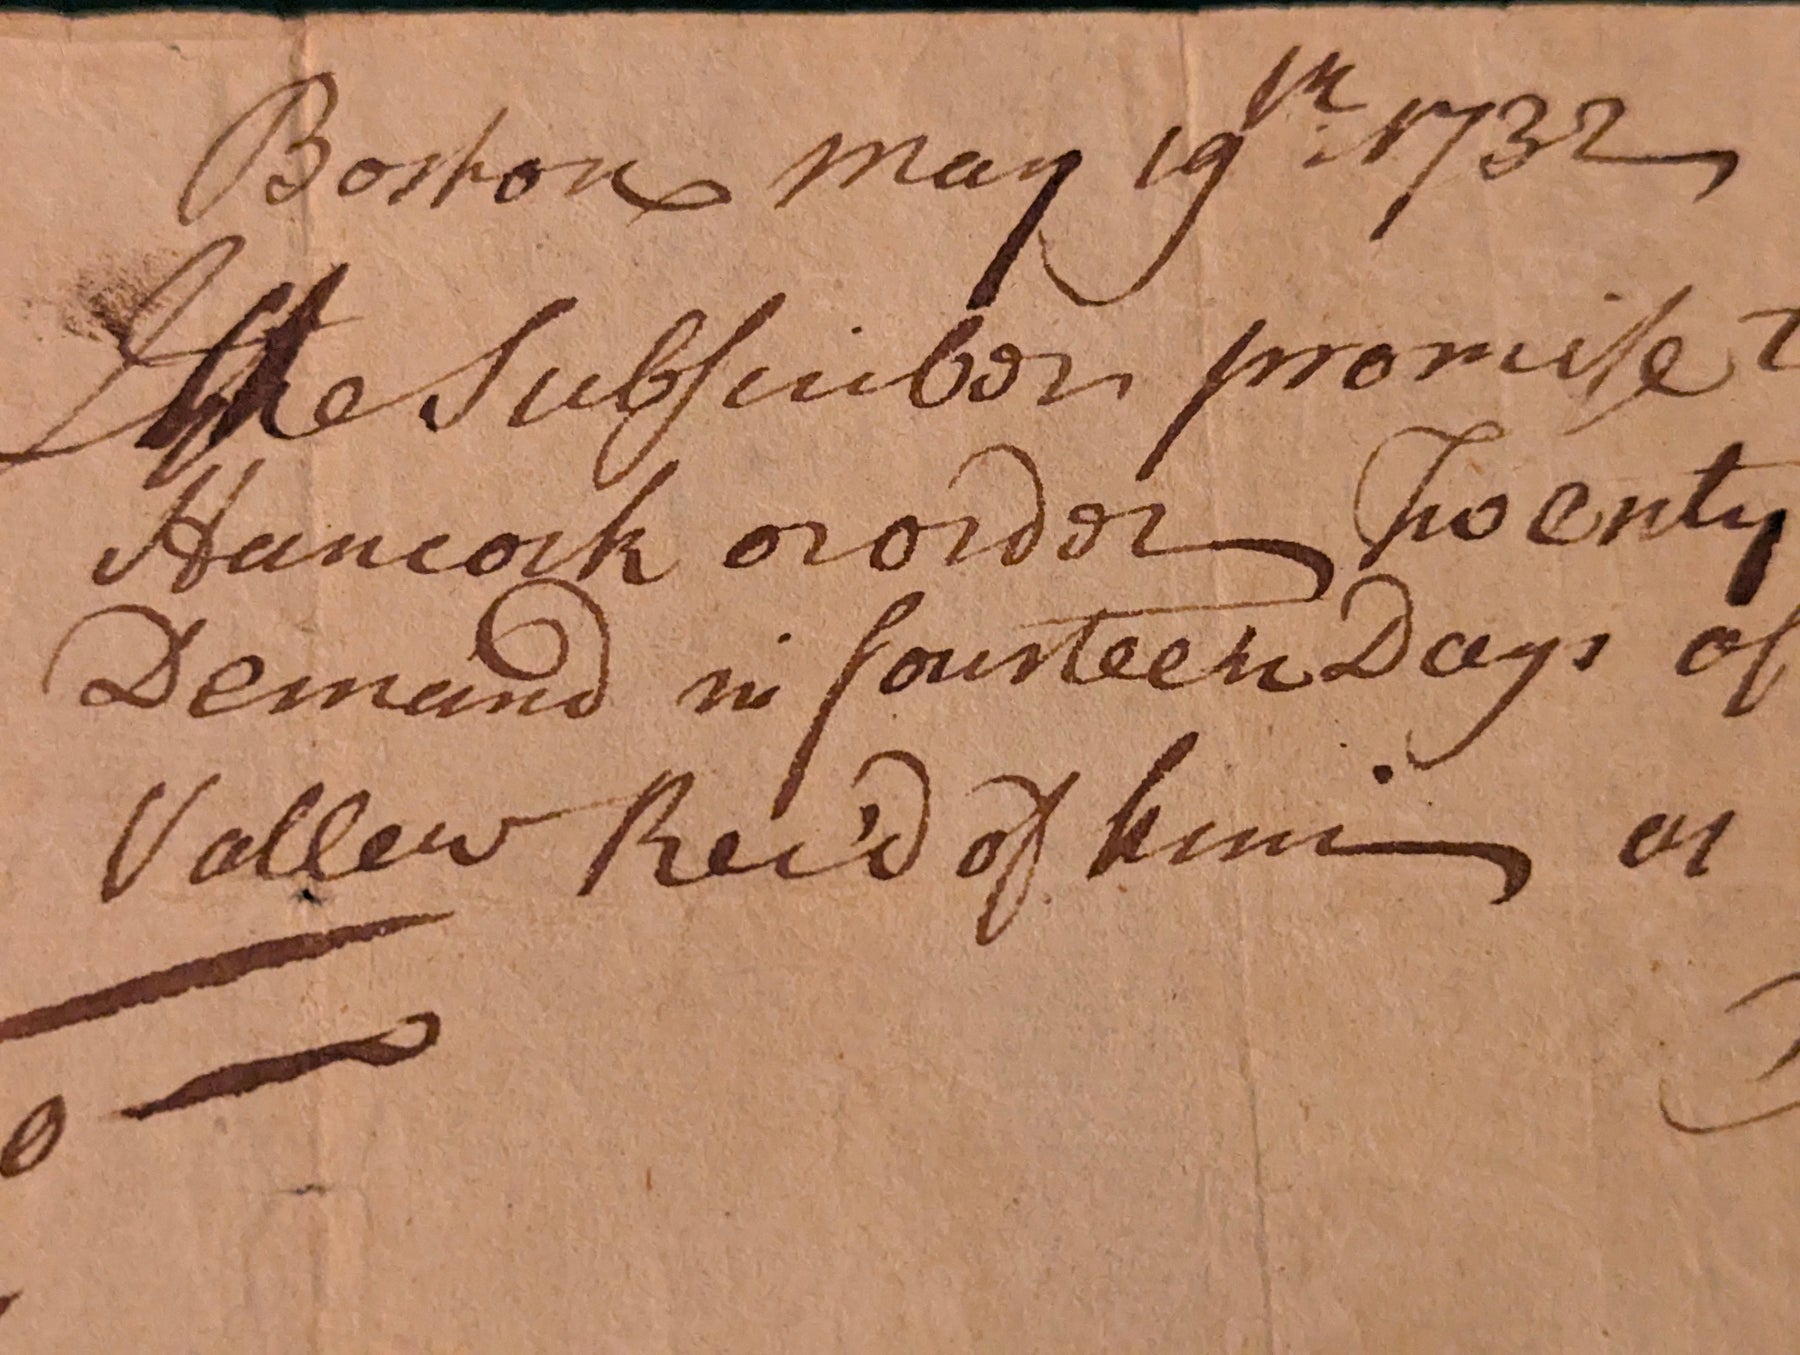 Boston May 19th. 1732
I the Subscriber promise t
Hancock or order Twenty
Demand in fourteen Days of
Vallew Rec'd of him or
0